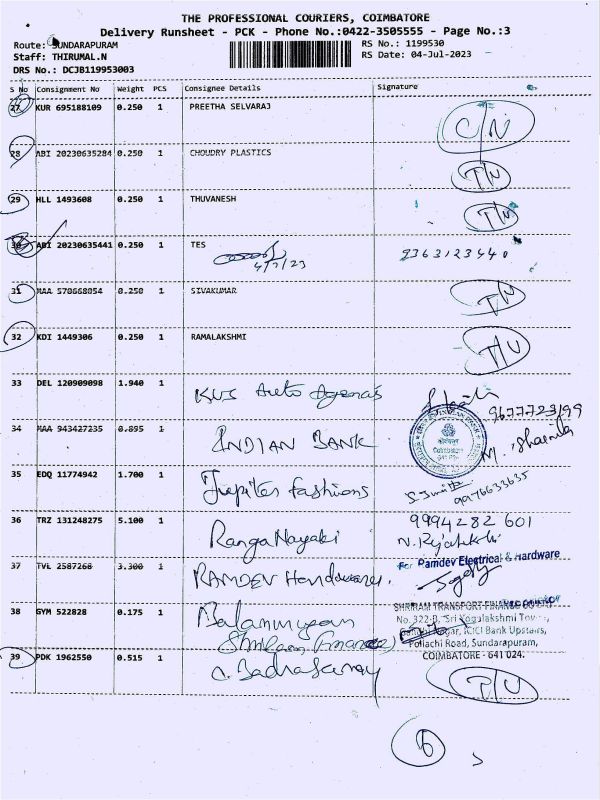 THE PROFESSIONAL COURIERS, COIMBATORE
Delivery Runsheet - PCK - Phone No.:0422-3505555 - Page No.:3
Route: SUNDARAPURAM RS No.: 1199530
Staff: THIRUMAL.N RS Date: 04-Jul-2023
DRS No.: DCJB119953003
S No Consignment No Weight PCS Consignee Details Signature
27 KUR 695188109 0.250 1 PREETHA SELVARAJ C/N
28 ABI 20230635284 0.250 1 CHOUDRY PLASTICS T/U
29 HLL 1493608 0.250 1 THUVANESH T/U
30 ABI 20230635441 0.250 1 TES 9363123440
4/7/23
31 MAA 570668054 0.250 1 SIVAKUMAR T/U
32 KDI 1449306 0.250 1 RAMALAKSHMI T/U
33 DEL 120909098 1.940 1 KUS Auto Agencies
34 MAA 943427235 0.895 1 INDIAN BANK M. Sharmila
35 EDQ 11774942 1.700 1 Jupiter Fashions
9976633635
36 TRZ 131248275 5.100 1 Ranga Nayaki 9994282601
37 TVL 2587268 3.300 1 RAMDEV Hardwares For Ramdev Electrical & Hardware
38 GYM 522828 0.175 1 Balamurugan
Shriram Finance
SHRIRAM TRANSPORT FINANCE CO LTD
No. 322-B, Sri Yogalakshmi Towers,
Gandhi Nagar, ICICI Bank Upstairs,
Pollachi Road, Sundarapuram,
COIMBATORE - 641 024.
39 PDK 1962550 0.515 1 T/U
6